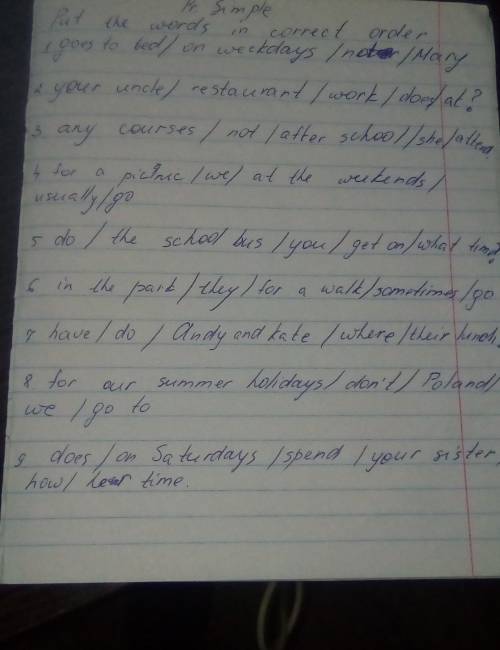 Pr. Simple
Put the words in correct order
1 goes to bed / on weekdays / / Mary
2 your uncle / restaurant / work / does / at?
3 any courses / not / after school / she / attend.
4 for a picnic / we / at the weekends /
usually / go
5 do / the school bus / you / get on / what time?
6 in the park / they / for a walk / sometimes / go
7 have / do / Andy and Kate / where / their lunch
8 for our summer holidays / don't / Poland /
we / go to
9 does / on Saturdays / spend / your sister,
how / her time.